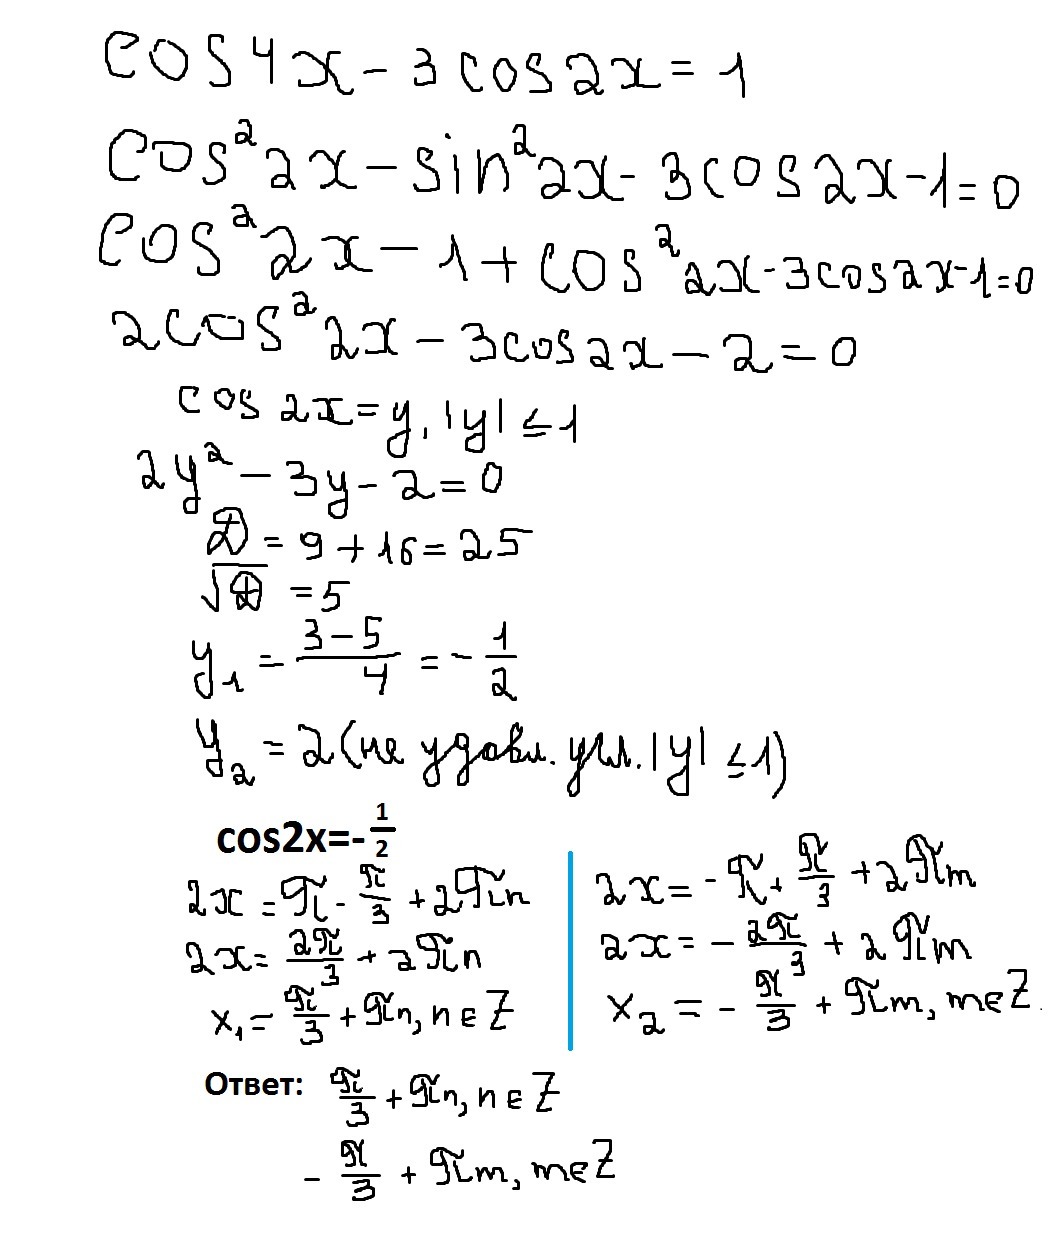 cos4x - 3cos2x = 1
cos²2x - sin²2x - 3cos2x - 1 = 0
cos²2x - 1 + cos²2x - 3cos2x - 1 = 0
2cos²2x - 3cos2x - 2 = 0
cos2x = y, |y| ≤ 1
2y² - 3y - 2 = 0
D = 9 + 16 = 25
√D = 5
y₁ = (3 - 5)/4 = -1/2
y₂ = 2 (не удовл. усл. |y| ≤ 1)
cos2x=-1/2
2x = π - π/3 + 2πn
2x = 2π/3 + 2πn
x₁ = π/3 + πn, n ∈ Z
2x = -π + π/3 + 2πm
2x = -2π/3 + 2πm
x₂ = -π/3 + πm, m ∈ Z.
Ответ: π/3 + πn, n ∈ Z
-π/3 + πm, m ∈ Z